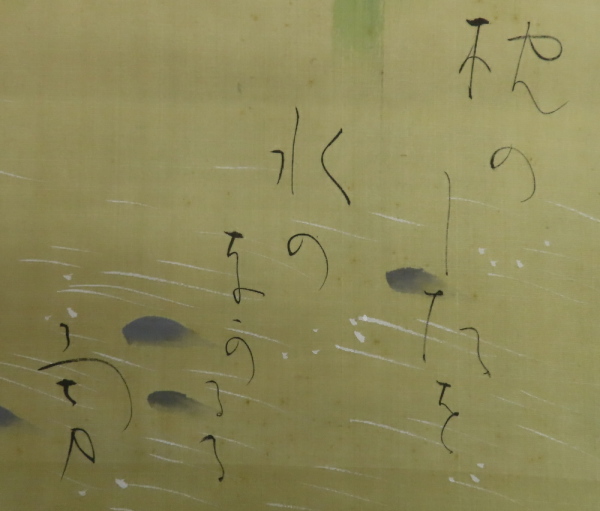 枕の
したを
水の
なかるゝ